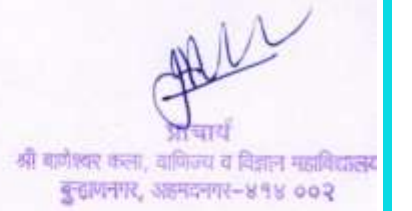 प्राचार्य
श्री बाणेश्वर कला, वाणिज्य व विज्ञान महाविद्यालय
बुऱ्हाणनगर, अहमदनगर-४१४ ००२